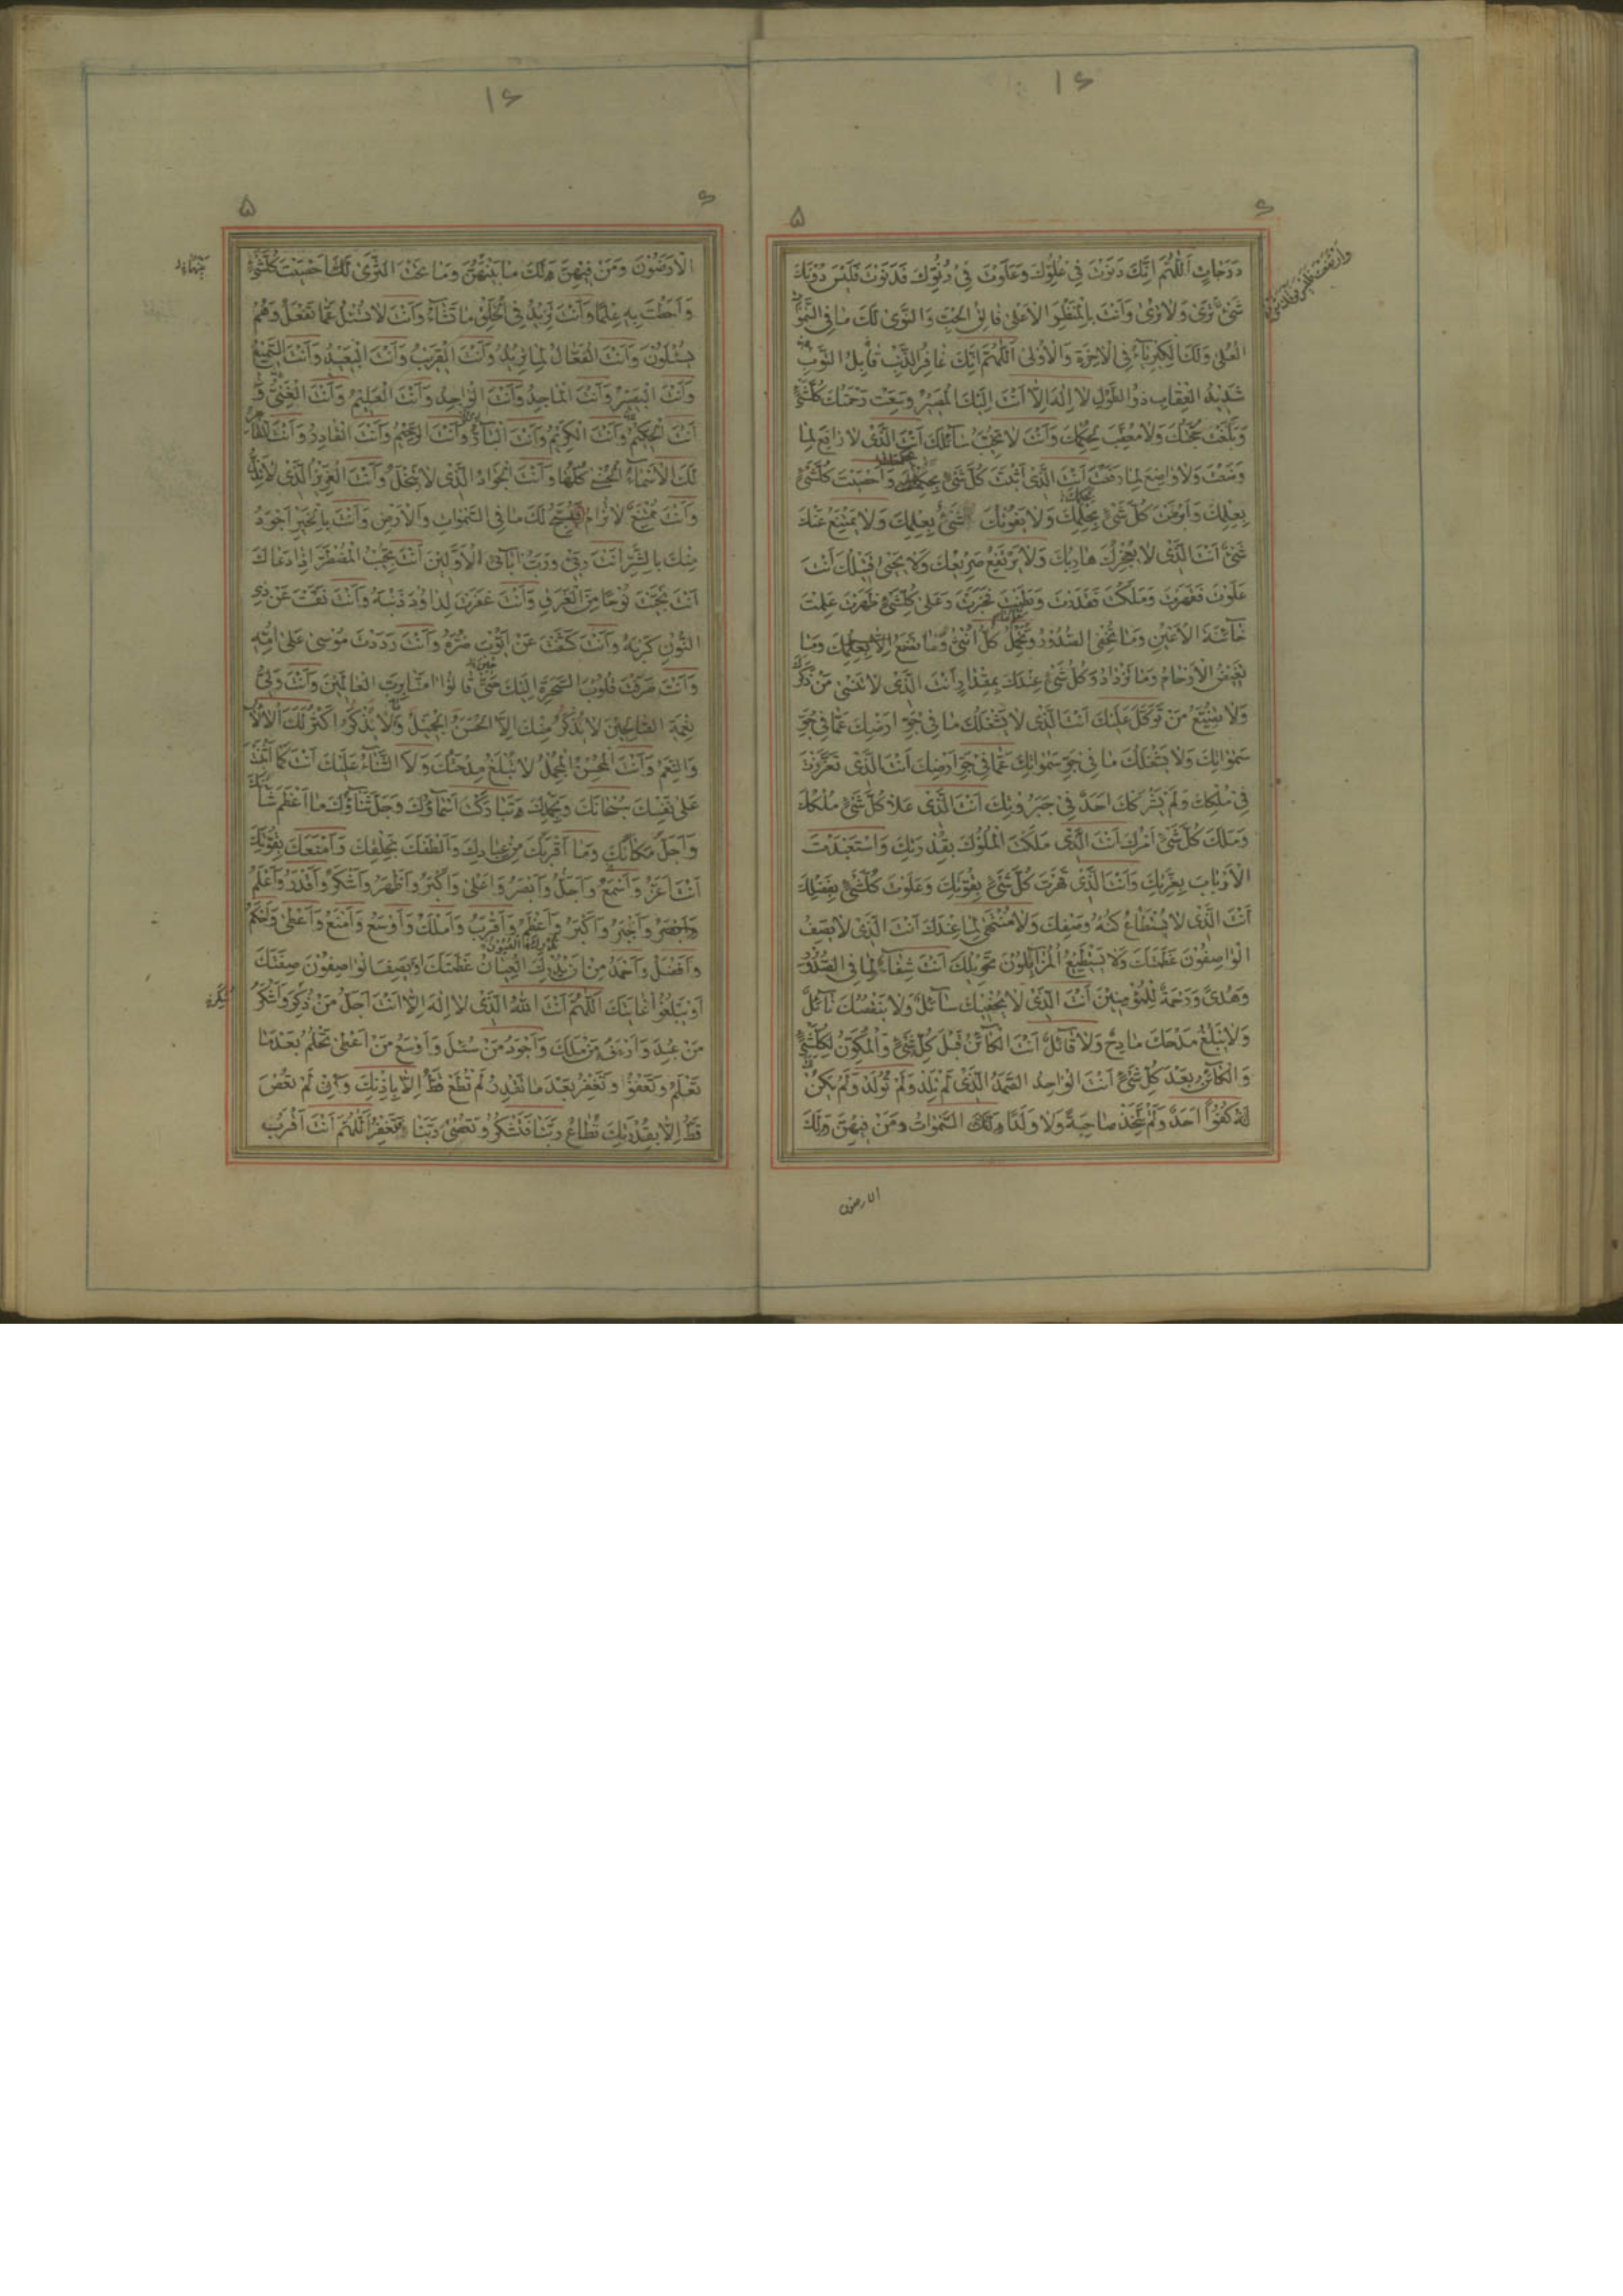 ۱۶
۶
۵
دَرَجاتٍ اَللّٰهُمَّ اِنَّكَ دَنَوْتَ فِى عُلُوِّكَ وَعَلَوْتَ فِى دُنُوِّكَ فَدَنَوْتَ فَلَيْسَ دُونَكَ
شَىْءٌ وَارْتَفَعْتَ فَلَيْسَ فَوْقَكَ شَىْءٌ
تَرىٰ وَلا تُرىٰ وَاَنْتَ بِالْمَنْظَرِ الْاَعْلىٰ فالِقُ الْحَبِّ وَالنَّوىٰ لَكَ ما فِى السَّمٰواتِ
الْعُلىٰ وَلَكَ الْكِبْرِيآءُ فِى الْاٰخِرَةِ وَالْاُولىٰ اَللّٰهُمَّ اِنَّكَ غافِرُ الذَّنْبِ قابِلُ التَّوْبِ
شَديدُ الْعِقابِ ذُو الطَّوْلِ لا اِلٰهَ اِلّا اَنْتَ اِلَيْكَ الْمَصيرُ وَسِعَتْ رَحْمَتُكَ كُلَّشَىْءٍ
وَبَلَغَتْ حُجَّتُكَ وَلا مُعَقِّبَ لِحُكْمِكَ وَاَنْتَ لا تُخَيِّبُ سآئِلَكَ اَنْتَ الَّذى لا رافِعَ لِما
وَضَعْتَ وَلا واضِعَ لِما رَفَعْتَ اَنْتَ الَّذى اَثْبَتَّ كُلَّ شَىْءٍ بِحُكْمِكَ وَاَحْصَيْتَ كُلَّشَىْءٍ
بِعِلْمِكَ وَاَبْرَمْتَ كُلَّ شَىْءٍ بِحُكْمِكَ وَلا يَفُوتُكَ شَىْءٌ بِعِلْمِكَ وَلا يَمْتَنِعُ عَنْكَ
شَىْءٌ اَنْتَ الَّذى لا يُعْجِزُكَ هارِبُكَ وَلا يَرْتَفِعُ صَريعُكَ وَلا يَحْيىٰ قَتيلُكَ اَنْتَ
عَلَوْتَ فَقَهَرْتَ وَمَلَكْتَ فَقَدَرْتَ وَبَطَنْتَ فَخَبَرْتَ وَعَلىٰ كُلِّشَىْءٍ ظَهَرْتَ عَلِمْتَ
خآئِنَةَ الْاَعْيُنِ وَما تُخْفِى الصُّدُورُ وَتَحْمِلُ كُلُّ اُنْثىٰ وَما تَضَعُ اِلّا بِعِلْمِكَ وَما
تَغيضُ الْاَرْحامُ وَما تَزْدادُ وَكُلُّ شَىْءٍ عِنْدَكَ بِمِقْدارٍ اَنْتَ الَّذى لا تَنْسىٰ مَنْ ذَكَرَكَ
وَلا يَضيعُ مَنْ تَوَكَّلَ عَلَيْكَ اَنْتَ الَّذى لا يَشْغَلُكَ ما فى جَوِّ اَرْضِكَ عَمّا فى جَوِّ
سَمٰواتِكَ وَلا يَشْغَلُكَ ما فى جَوِّ سَمٰواتِكَ عَمّا فى جَوِّ اَرْضِكَ اَنْتَ الَّذى تَعَزَّزْتَ
فى مُلْكِكَ وَلَمْ يَشْرَكْكَ اَحَدٌ فى جَبَرُوتِكَ اَنْتَ الَّذى عَلا كُلَّ شَىْءٍ مُلْكُكَ
وَمَلَكَ كُلَّ شَىْءٍ اَمْرُكَ اَنْتَ الَّذى مَلَكْتَ الْمُلُوكَ بِقُدْرَتِكَ وَاسْتَعْبَدْتَ
الْاَرْبابَ بِعِزَّتِكَ وَاَنْتَ الَّذى قَهَرْتَ كُلَّ شَىْءٍ بِقُوَّتِكَ وَعَلَوْتَ كُلَّشَىْءٍ بِفَضْلِكَ
اَنْتَ الَّذى لا يُسْتَطاعُ كُنْهُ وَصْفِكَ وَلا مُنْتَهىٰ لِما عِنْدَكَ اَنْتَ الَّذى لا يَصِفُ
الْواصِفُونَ عَظَمَتَكَ وَلا يَسْتَطيعُ الْمُزايِلُونَ تَحْويلَكَ اَنْتَ شِفآءٌ لِما فِى الصُّدُورِ
وَهُدىً وَرَحْمَةٌ لِلْمُؤْمِنينَ اَنْتَ الَّذى لا يُحْفيكَ سآئِلٌ وَلا يَنْقُصُكَ نآئِلٌ
وَلا يَبْلُغُ مَدْحَكَ مادِحٌ وَلا قآئِلٌ اَنْتَ الْكآئِنُ قَبْلَ كُلِّ شَىْءٍ وَالْمُكَوِّنُ لِكُلِّشَىْءٍ
وَالْكآئِنُ بَعْدَ كُلِّ شَىْءٍ اَنْتَ الْواحِدُ الصَّمَدُ الَّذى لَمْ تَلِدْ وَلَمْ تُولَدْ وَلَمْ يَكُنْ
لَهُ كُفُوًا اَحَدٌ وَلَمْ تَتَّخِذْ صاحِبَةً وَلا وَلَدًا وَلَكَ السَّمٰواتُ وَمَنْ فيهِنَّ وَلَكَ
الارضون
۱۶
۶
۵
الْاَرَضُونَ وَمَنْ فيهِنَّ وَلَكَ ما بَيْنَهُنَّ وَما تَحْتَ الثَّرىٰ لَكَ اَحْصَيْتَ كُلَّشَىْءٍ
وَاَحَطْتَ بِهِ عِلْمًا وَاَنْتَ تَزيدُ فِى الْخَلْقِ ما تَشآءُ وَاَنْتَ لا تُسْئَلُ عَمّا تَفْعَلُ وَهُمْ
يُسْئَلُونَ وَاَنْتَ الْفَعّالُ لِما تُريدُ وَاَنْتَ الْقَريبُ وَاَنْتَ الْبَعيدُ وَاَنْتَ السَّميعُ
وَاَنْتَ الْبَصيرُ وَاَنْتَ الْماجِدُ وَاَنْتَ الْواحِدُ وَاَنْتَ الْعَليمُ وَاَنْتَ الْغَنِىُّ وَ
اَنْتَ الْحَكيمُ وَاَنْتَ الْكَريمُ وَاَنْتَ الْبآرُّ وَاَنْتَ الرَّحيمُ وَاَنْتَ الْقادِرُ وَاَنْتَ الْقاهِرُ
لَكَ الْاَسْمآءُ الْحُسْنىٰ كُلُّها وَاَنْتَ الْجَوادُ الَّذى لا يَبْخَلُ وَاَنْتَ الْعَزيزُ الَّذى لا يَذِلُّ
وَاَنْتَ مُمْتَنِعٌ لا تُرامُ يُسَبِّحُ لَكَ ما فِى السَّمٰواتِ وَالْاَرْضِ وَاَنْتَ بِالْخَيْرِ اَجْوَدُ
مِنْكَ بِالشَّرِّ اَنْتَ رَبّى وَرَبُّ اٰبآئِىَ الْاَوَّلينَ اَنْتَ تُجيبُ الْمُضْطَرَّ اِذا دَعاكَ
اَنْتَ نَجَّيْتَ نُوحًا مِنَ الْغَرَقِ وَاَنْتَ غَفَرْتَ لِداوُدَ ذَنْبَهُ وَاَنْتَ نَفَّسْتَ عَنْ ذِى
النُّونِ كَرْبَهُ وَاَنْتَ كَشَفْتَ عَنْ اَيُّوبَ ضُرَّهُ وَاَنْتَ رَدَدْتَ مُوسىٰ عَلىٰ اُمِّهِ
وَاَنْتَ صَرَفْتَ قُلُوبَ السَّحَرَةِ اِلَيْكَ حَتّىٰ قالُوا اٰمَنّا بِرَبِّ الْعالَمينَ وَاَنْتَ وَلِىُّ
نِعْمَةِ الصّالِحينَ لا يُذْكَرُ مِنْكَ اِلَّا الْحَسَنُ الْجَميلُ وَما لا يُذْكَرُ اَكْثَرُ لَكَ الْاٰلآءُ
وَالنِّعَمُ وَاَنْتَ الْمُحْسِنُ الْمُجْمِلُ لا تُبْلَغُ مِدْحَتُكَ وَلَا الثَّنآءُ عَلَيْكَ اَنْتَ كَما اَثْنَيْتَ
عَلىٰ نَفْسِكَ سُبْحانَكَ وَبِحَمْدِكَ تَبارَكَتْ اَسْمآؤُكَ وَجَلَّ ثَنآؤُكَ ما اَعْظَمَ شَأْنَكَ
وَاَجَلَّ مَكانَكَ وَما اَقْرَبَكَ مِنْ عِبادِكَ وَاَلْطَفَكَ بِخَلْقِكَ وَاَمْنَعَكَ بِقُوَّتِكَ
اَنْتَ اَعَزُّ وَاَسْمَعُ وَاَجَلُّ وَاَبْصَرُ وَاَعْلىٰ وَاَكْبَرُ وَاَظْهَرُ وَاَشْكَرُ وَاَقْدَرُ وَاَعْلَمُ
وَاَجْبَرُ وَاَكْبَرُ وَاَعْظَمُ وَاَقْرَبُ وَاَمْلَكُ وَاَوْسَعُ وَاَمْنَعُ وَاَعْطىٰ وَاَحْكَمُ
وَاَفْضَلُ وَاَحْمَدُ مِنْ اَنْ تُدْرِكَ الْعِيانُ عَظَمَتَكَ اَوْ يَصِفَ الْواصِفُونَ صِفَتَكَ
اَوْ يَبْلُغُوا غايَتَكَ اَللّٰهُمَّ اَنْتَ اللّٰهُ الَّذى لا اِلٰهَ اِلّا اَنْتَ اَجَلُّ مَنْ ذُكِرَ وَاَشْكَرُ
مَنْ عُبِدَ وَاَرْءَفُ مَنْ مَلَكَ وَاَجْوَدُ مَنْ سُئِلَ وَاَوْسَعُ مَنْ اَعْطىٰ تَحْلُمُ بَعْدَ ما
تَعْلَمُ وَتَعْفُو وَتَغْفِرُ بَعْدَ ما تَقْدِرُ لَمْ تُطَعْ قَطُّ اِلّا بِاِذْنِكَ وَلَمْ تُعْصَ
قَطُّ اِلّا بِقُدْرَتِكَ تُطاعُ رَبَّنا فَتَشْكُرُ وَتُعْصىٰ رَبَّنا فَتَغْفِرُ اَللّٰهُمَّ اَنْتَ اَقْرَبُ